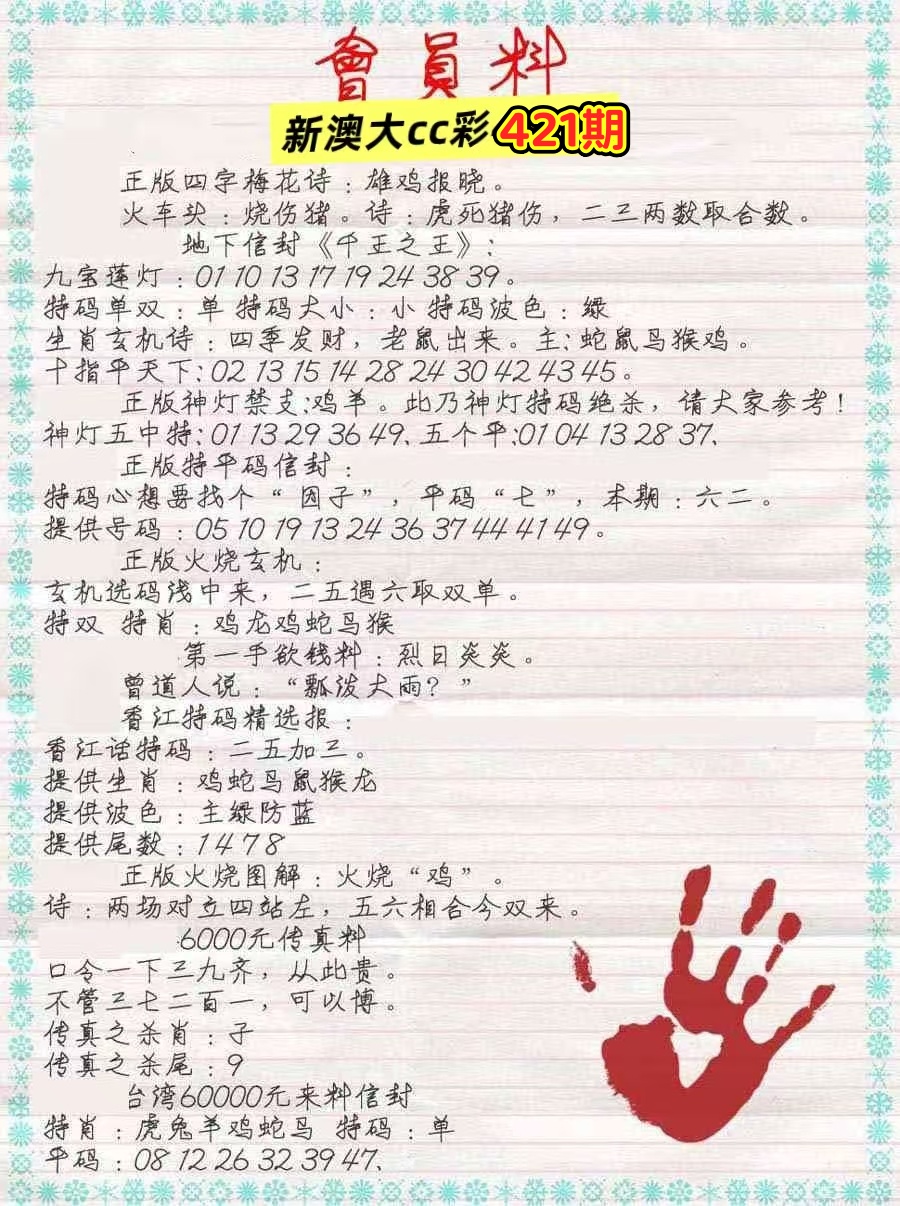 會員料
新澳大cc彩421期
正版四字梅花诗：雄鸡报晓。
火车头：烧伤猪。诗：虎死猪伤，二三两数取合数。
地下信封《千王之王》：
九宝莲灯：01 10 13 17 19 24 38 39。
特码单双：单 特码大小：小 特码波色：绿
生肖玄机诗：四季发财，老鼠出来。主：蛇鼠马猴鸡。
十指平天下：02 13 15 14 28 24 30 42 43 45。
正版神灯禁支：鸡羊。此乃神灯特码绝杀，请大家参考！
神灯五中特：01 13 29 36 49、五个平：01 04 13 28 37、
正版特平码信封：
特码心想要找个“因子”，平码“七”，本期：六二。
提供号码：05 10 19 13 24 36 37 44 41 49。
正版火烧玄机：
玄机选码浅中来，二五遇六取双单。
特双 特肖：鸡龙鸡蛇马猴
第一手欲钱料：烈日炎炎。
曾道人说：“瓢泼大雨？”
香江特码精选报：
香江话特码：二五加三。
提供生肖：鸡蛇马鼠猴龙
提供波色：主绿防蓝
提供尾数：1 4 7 8
正版火烧图解：火烧“鸡”。
诗：两场对立四站左，五六相合今双来。
6000元传真料
口令一下三九齐，从此贵。
不管三七二百一，可以博。
传真之杀肖：子
传真之杀尾：9
台湾60000元来料信封
特肖：虎兔羊鸡蛇马 特码：单
平码：08 12 26 32 39 47、